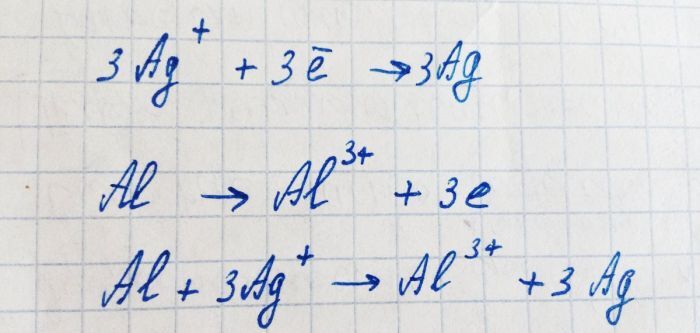 3Ag⁺ + 3ē → 3Ag
Al → Al³⁺ + 3e
Al + 3Ag⁺ → Al³⁺ + 3Ag